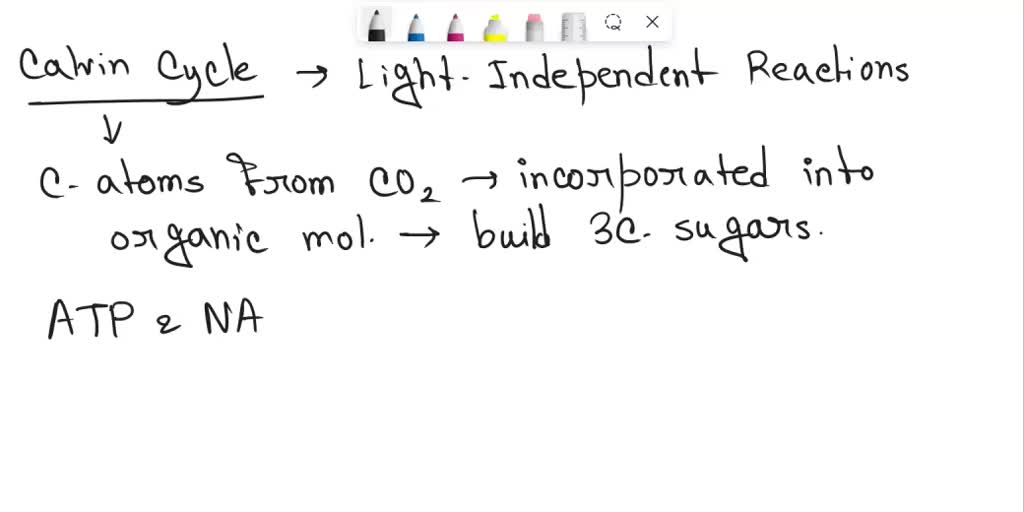 Calvin Cycle → Light-Independent Reactions
↓
C-atoms from CO₂ → incorporated into
organic mol. → build 3C. sugars.
ATP & NA